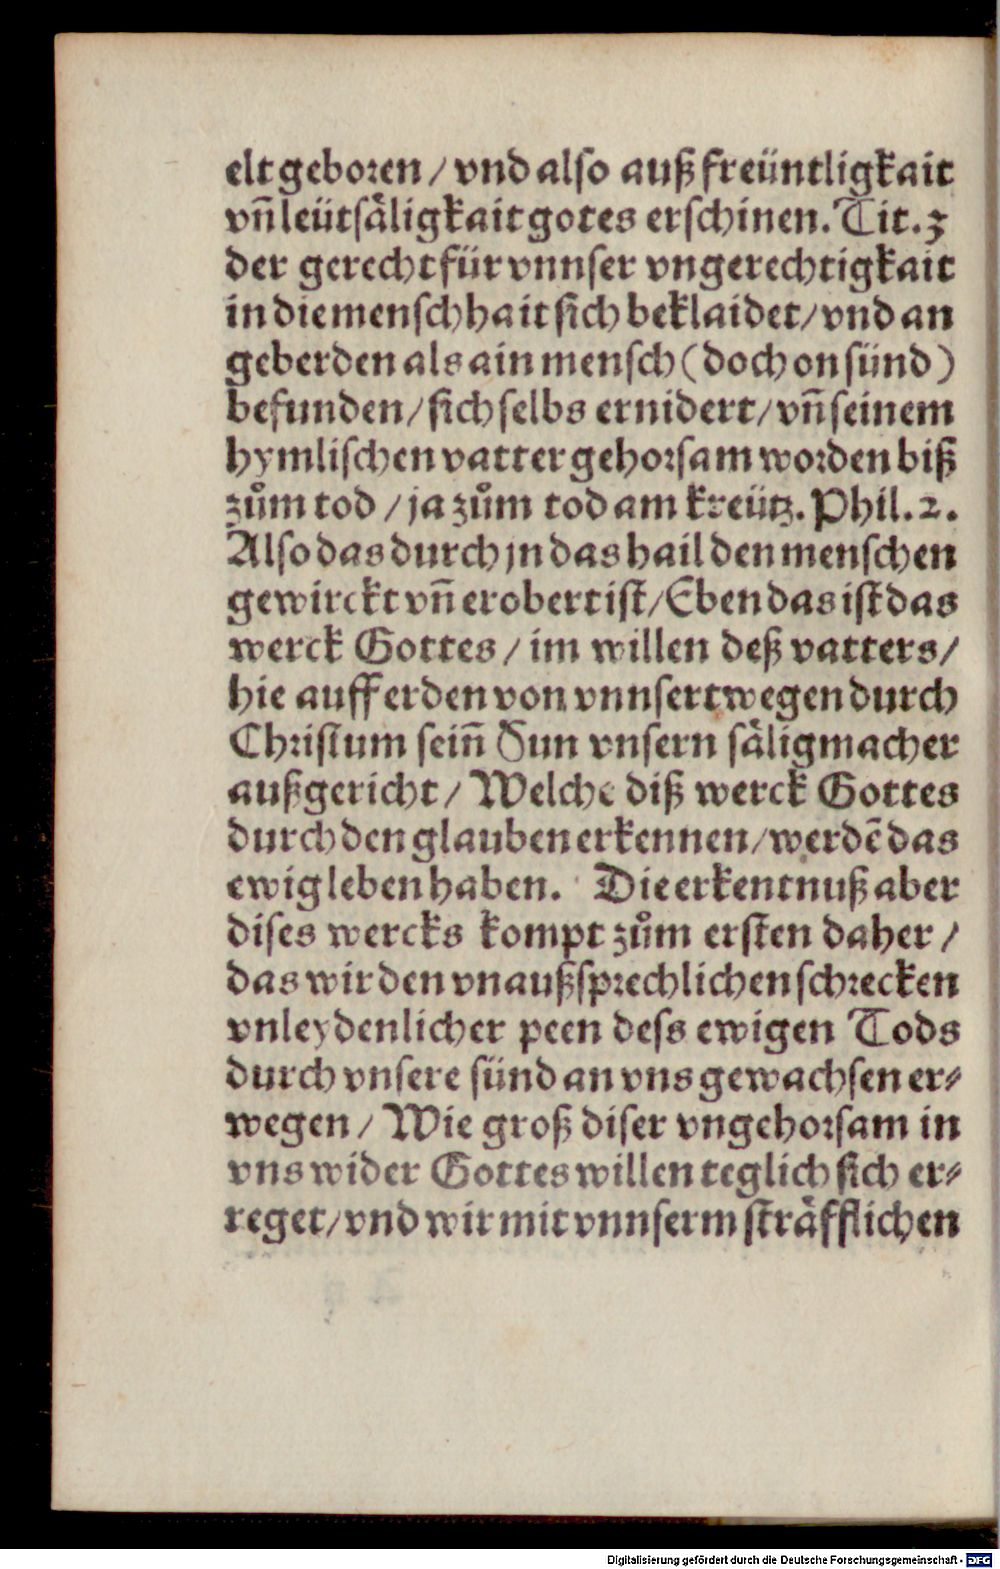 elt geboren / vnd also auß freüntligkait
vñ leütsäligkait gotes erschinen. Tit. 3
der gerecht für vnnser vngerechtigkait
in die menschhait sich beklaidet / vnd an
geberden als ain mensch (doch on sünd)
befunden / sich selbs ernidert / vñ seinem
hymlischen vatter gehorsam worden biß
zům tod / ja zům tod am kreütz. Phil. 2.
Also das durch jn das hail den menschen
gewirckt vñ erobert ist / Eben das ist das
werck Gottes / im willen deß vatters /
hie auff erden von vnnsert wegen durch
Christum seiñ Sun vnsern säligmacher
außgericht / Welche diß werck Gottes
durch den glauben erkennen / werdē das
ewig leben haben. Die erkentnuß aber
dises wercks kompt zům ersten daher /
das wir den vnaußsprechlichen schrecken
vnleydenlicher peen dess ewigen Tods
durch vnsere sünd an vns gewachsen er⸗
wegen / Wie groß diser vngehorsam in
vns wider Gottes willen teglich sich er⸗
reget / vnd wir mit vnnserm sträfflichen
Digitalisierung gefördert durch die Deutsche Forschungsgemeinschaft - DFG